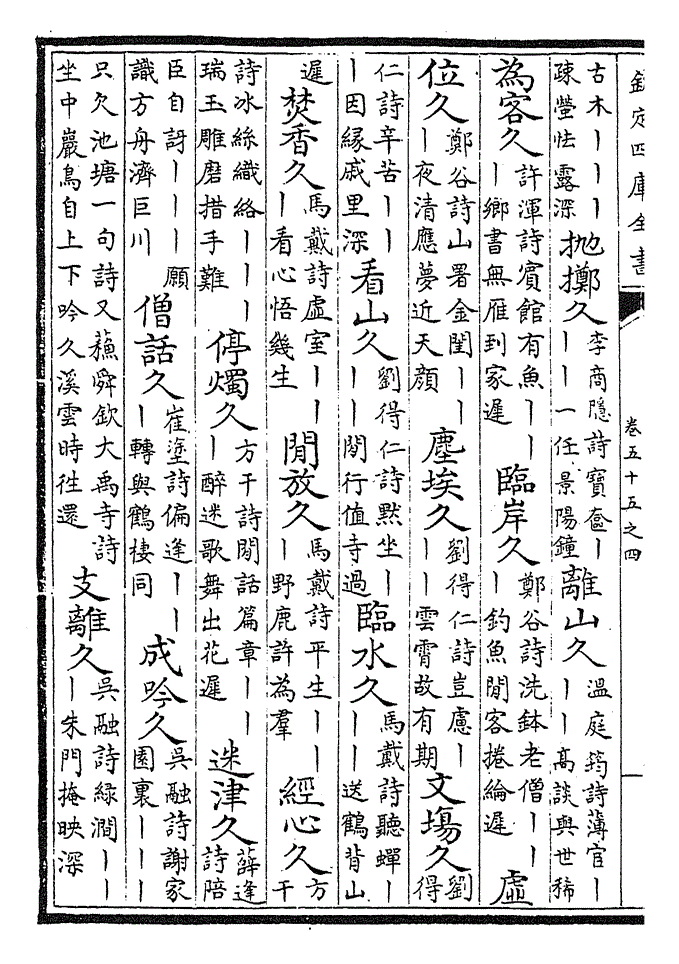 欽定四庫全書 卷五十五之四 一
古木｜｜｜疎螢怯露深 抛擲久 李商隱詩寶奩｜｜｜一任景陽鐘 離山久 溫庭筠詩薄宦｜｜｜高談與世稀
為客久 許渾詩賓館有魚｜｜｜鄉書無雁到家遲 臨岸久 鄭谷詩洗鉢老僧｜｜｜釣魚閒客捲綸遲 虛
位久 鄭谷詩山署金閨｜｜｜夜清應夢近天顔 塵埃久 劉得仁詩豈慮｜｜｜雲霄故有期 文塲久 劉得
仁詩辛苦｜｜｜因緣戚里深 看山久 劉得仁詩默坐｜｜｜閒行值寺過 臨水久 馬戴詩聽蟬｜｜｜送鶴背山
遲 焚香久 馬戴詩虛室｜｜｜看心悟幾生 閒放久 馬戴詩平生｜｜｜野鹿許為羣 經心久 方干
詩冰絲織絡｜｜｜瑞玉雕磨措手難 停燭久 方干詩閒話篇章｜｜｜醉迷歌舞出花遲 迷津久 薛逢詩陪
臣自訝｜｜｜願識方舟濟巨川 僧話久 崔塗詩偏逢｜｜｜轉與鶴棲同 成吟久 吳融詩謝家園裏｜｜｜
只欠池塘一句詩又蘇舜欽大禹寺詩坐中巖鳥自上下吟久溪雲時往還 支離久 吳融詩緑澗｜｜｜朱門掩映深